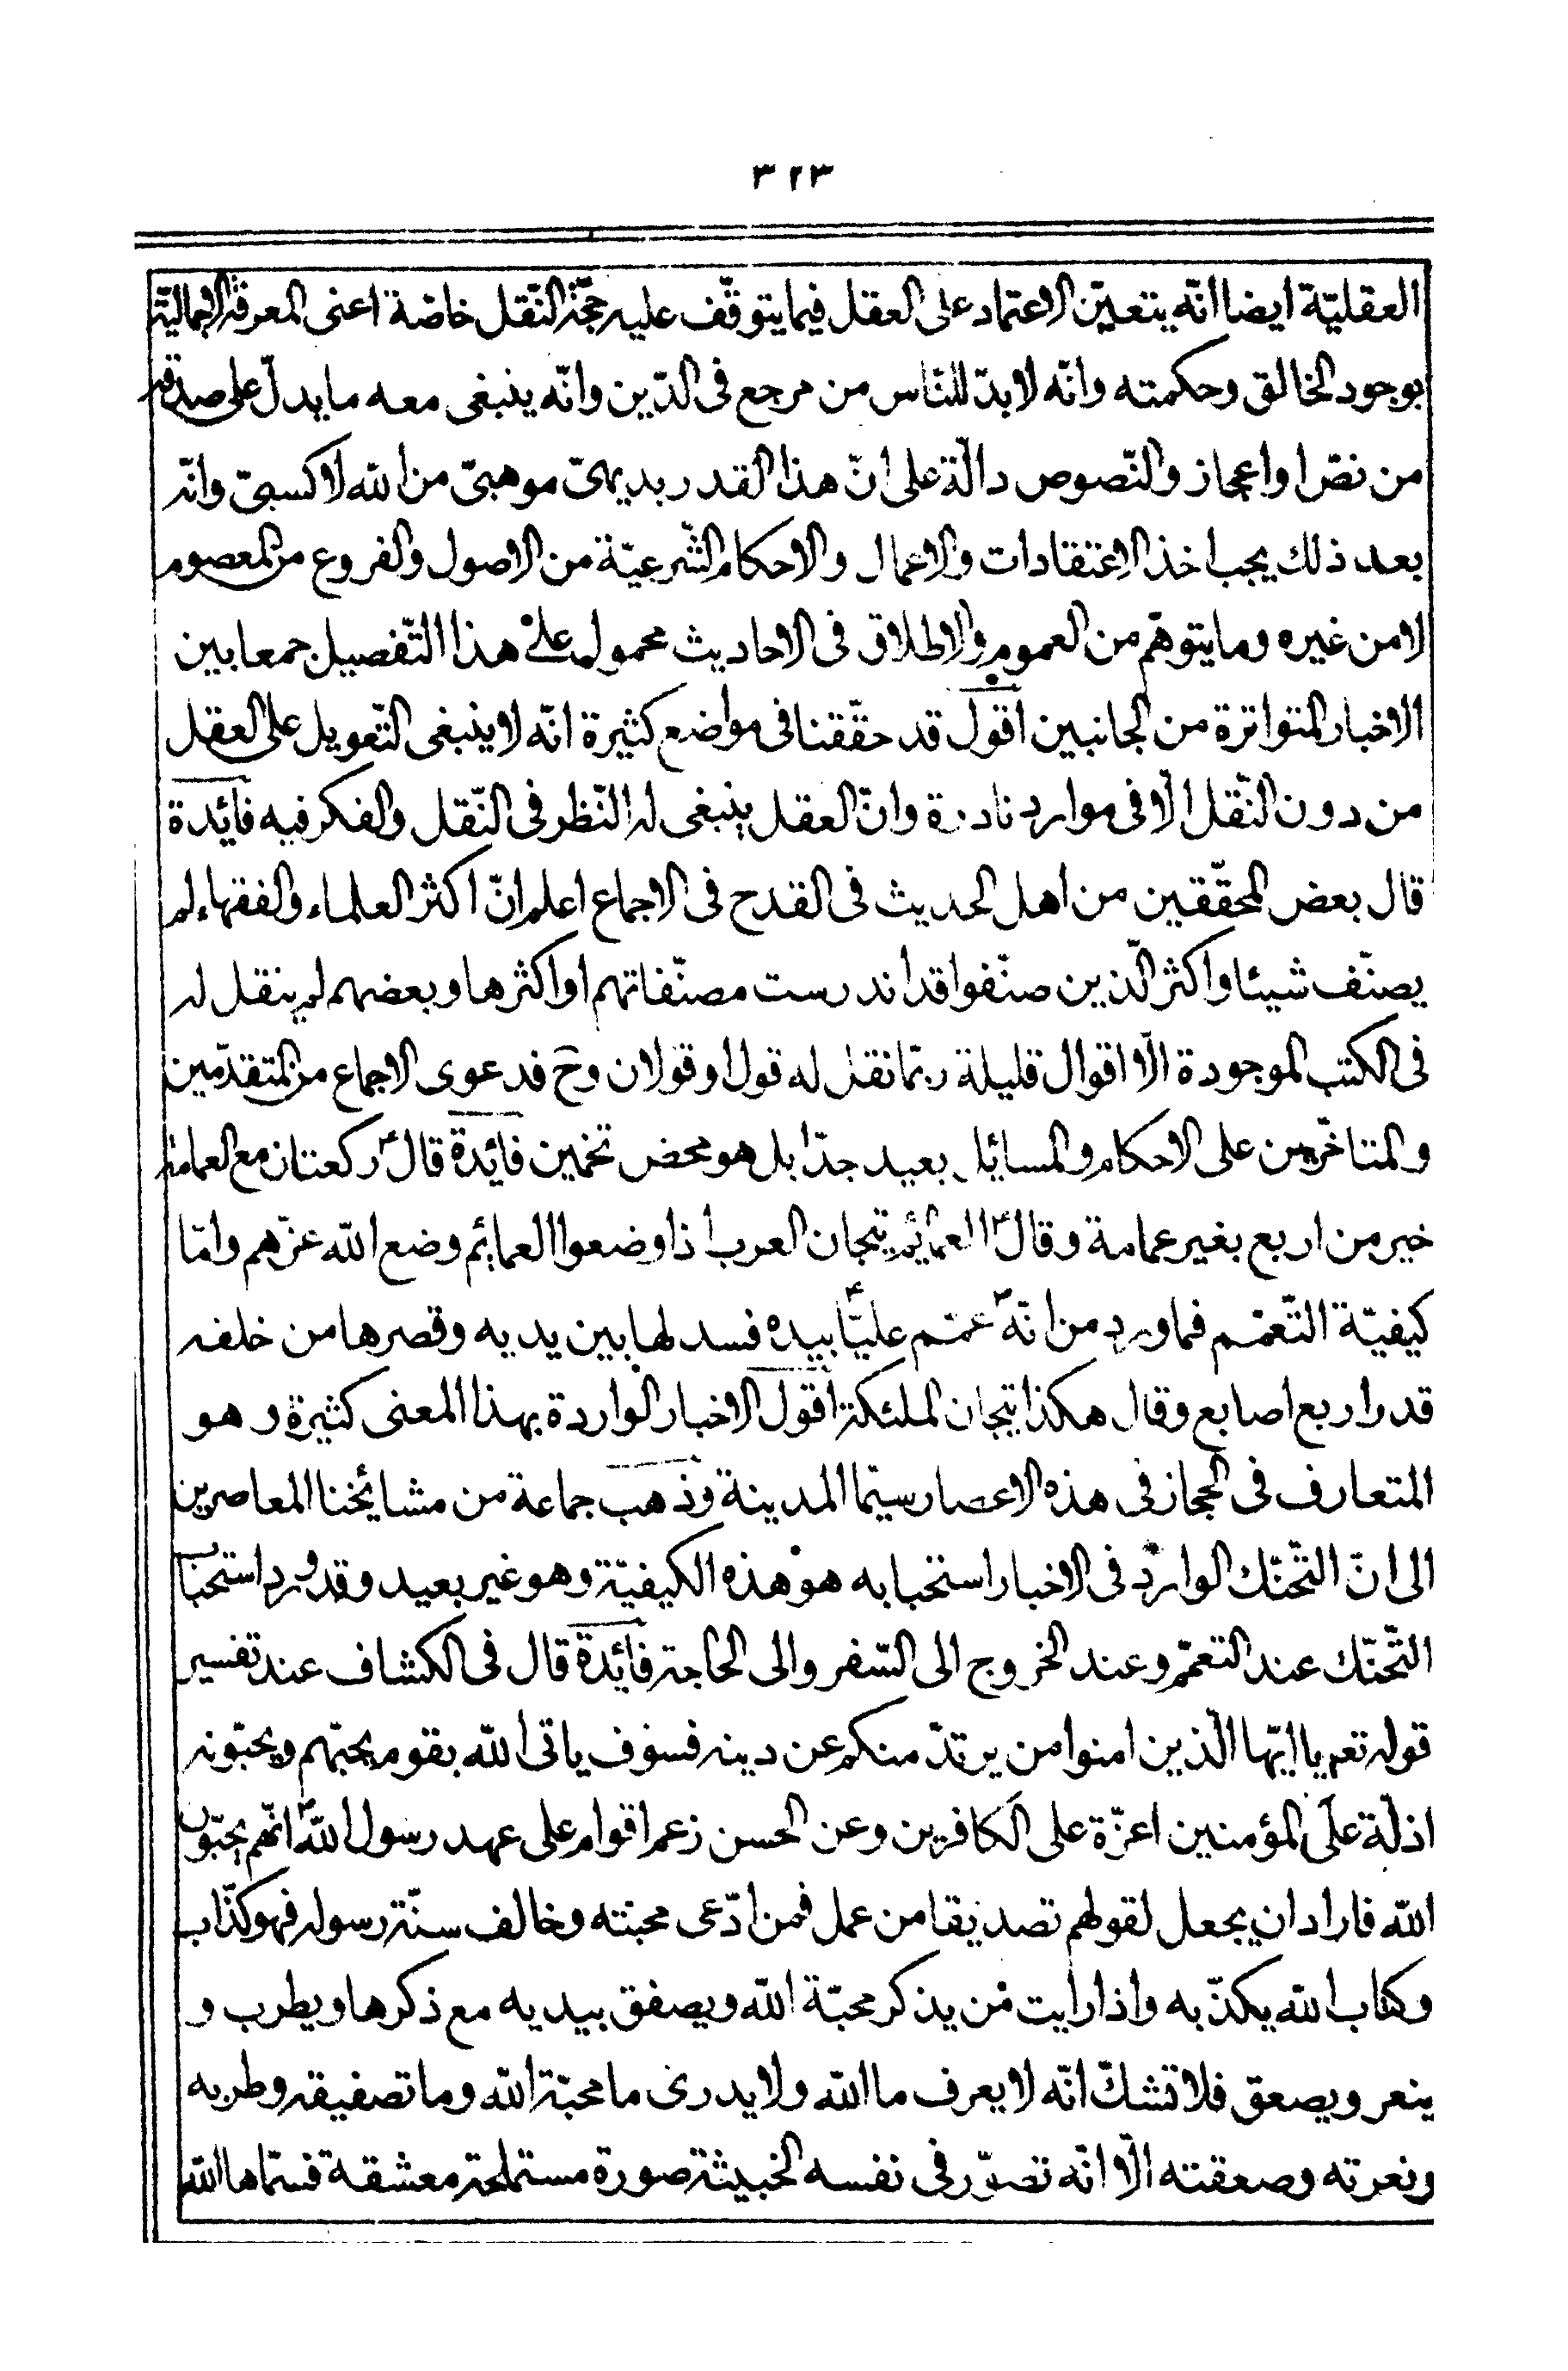 ٣٢٣
العقليّة ايضا انّه يتعيّن الاعتماد على العقل فيما يتوقّف عليه حجّة النّقل خاصّة اعنى المعرفة الاجماليّة
بوجود الخالق وحكمته وانّه لا بدّ للنّاس من مرجع فى الدّين وانّه ينبغى معه ما يدلّ على صدقه
من نصّ او اعجاز والنّصوص دالّة على انّ هذا القدر بديهىّ موهبىّ من الله لا كسبىّ وانّه
بعد ذلك يجب اخذ الاعتقادات والاعمال والاحكام الشّرعيّة من الاصول والفروع من المعصوم
لا من غيره وما يتوهّم من العموم والاطلاق فى الاحاديث محمول على هذا التّفصيل جمعا بين
الاخبار المتواترة من الجانبين اقول قد حقّقنا فى مواضع كثيرة انّه لا ينبغى التّعويل على العقل
من دون النّقل الّا فى موارد نادرة وانّ العقل ينبغى له النّظر فى النّقل والفكر فيه فائدة
قال بعض المحقّقين من اهل الحديث فى القدح فى الاجماع اعلم انّ اكثر العلماء والفقهاء لم
يصنّف شيئا واكثر الّذين صنّفوا قد اندرست مصنّفاتهم او اكثرها وبعضهم لم ينقل له
فى الكتب الموجودة الّا اقوال قليلة ربّما نقل له قول او قولان وح فدعوى الاجماع من المتقدّمين
والمتاخّرين على الاحكام والمسائل بعيد جدّا بل هو محض تخمين فائدة قال ص ركعتان مع العمامة
خير من اربع بغير عمامة وقال ص العمائم تيجان العرب اذا وضعوا العمايم وضع الله عزّهم وامّا
كيفيّة التّعمّم فما ورد من انّه ص عمّم عليّا ع بيده فسدلها بين يديه وقصرها من خلفه
قدر اربع اصابع وقال هكذا تيجان الملئكة اقول الاخبار الواردة بهذا المعنى كثيرة و هو
المتعارف فى الحجاز فى هذه الاعصار سيّما المدينة وذهب جماعة من مشائخنا المعاصرين
الى انّ التّحنّك الوارد فى الاخبار استحبابه هو هذه الكيفيّة وهو غير بعيد وقد ورد استحباب
التّحنّك عند التعمّم وعند الخروج الى السّفر والى الحاجة فائدة قال فى الكشاف عند تفسير
قوله تعم يا ايّها الّذين امنوا من يرتدّ منكم عن دينه فسوف ياتى الله بقوم يحبّهم ويحبّونه
اذلّة على المؤمنين اعزّة على الكافرين وعن الحسن زعم اقوام على عهد رسول الله ص انّهم يحبّون
الله فاراد ان يجعل لقولهم تصديقا من عمل فمن ادّعى محبّته وخالف سنّة رسوله فهو كذّاب
وكتاب الله يكذّبه واذا رايت من يذكر محبّة الله ويصفق بيديه مع ذكرها ويطرب و
ينعر ويصعق فلا تشكّ انّه لا يعرف ما الله ولا يدرى ما محبّة الله وما تصفيقه وطربه
ونعرته وصعقته الّا انّه تصوّر فى نفسه الخبيثة صورة مستملحة معشقة فسمّاها الله